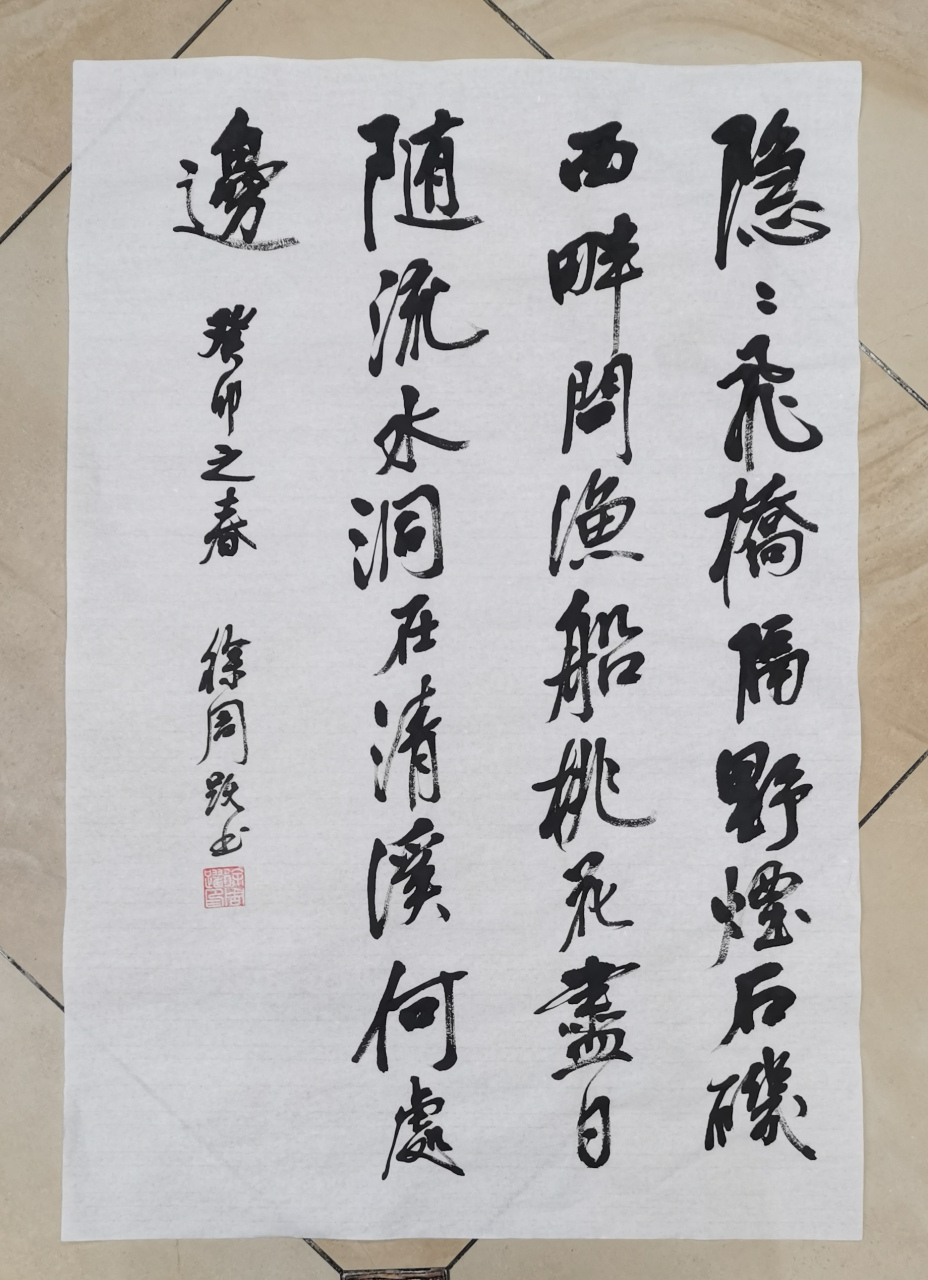 隐〻飛橋隔野煙石磯
西畔問漁船桃花盡日
随流水洞在清溪何處
邊
癸卯之春 徐周跃书